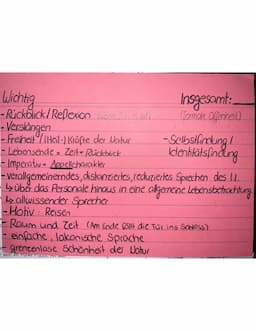 Wichtig Insgesamt:
- Rückblick / Reflexion (formale Offenheit)
- Verslängen
- Freiheit / (Heil-) Kräfte der Natur - Selbstfindung /
- Lebensende = Zeit + Rückblick Identitätsfindung
- Imperativ = Appellcharakter
- verallgemeinerndes, distanziertes, reduziertes Sprechen des l.I.
↳ über das Personale hinaus in eine allgemeine Lebensbetrachtung
↳ allwissender Sprecher
- Motiv: Reisen
- Raum und Zeit (Am Ende fällt die Tür ins Schloss)
- einfache, lakonische Sprache
- grenzenlose Schönheit der Natur